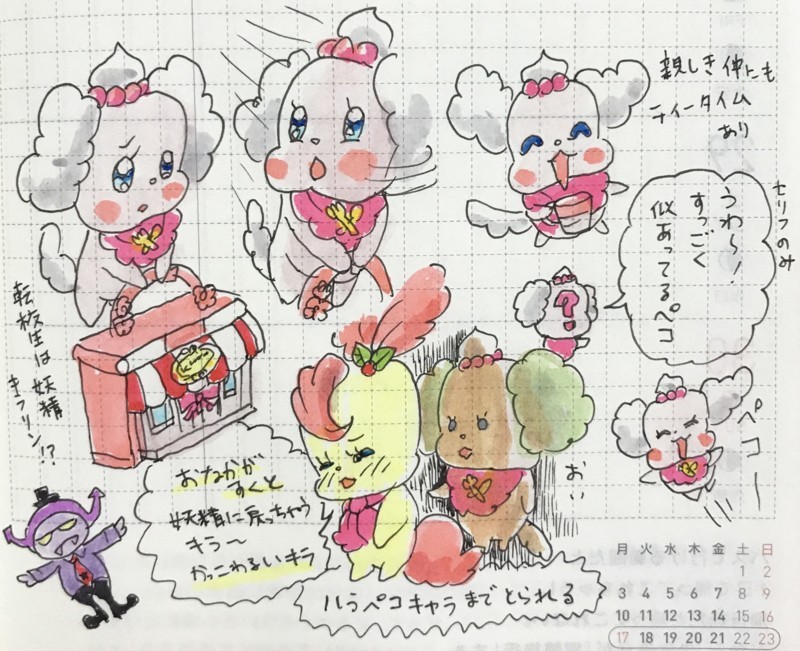 親しき仲にも
ティータイム
あり
セリフのみ
うわ〜!
すっごく
似あってるペコ
?
ペコー
転校生は妖精
キラリン!?
おなかが
すくと
妖精に戻っちゃう
キラ〜
かっこわるいキラ
おい
ハラペコキャラまでとられる
月 火 水 木 金 土 日
2
3 4 5 6 7 8 9
10 11 12 13 14 15 16
17 18 19 20 21 22 23